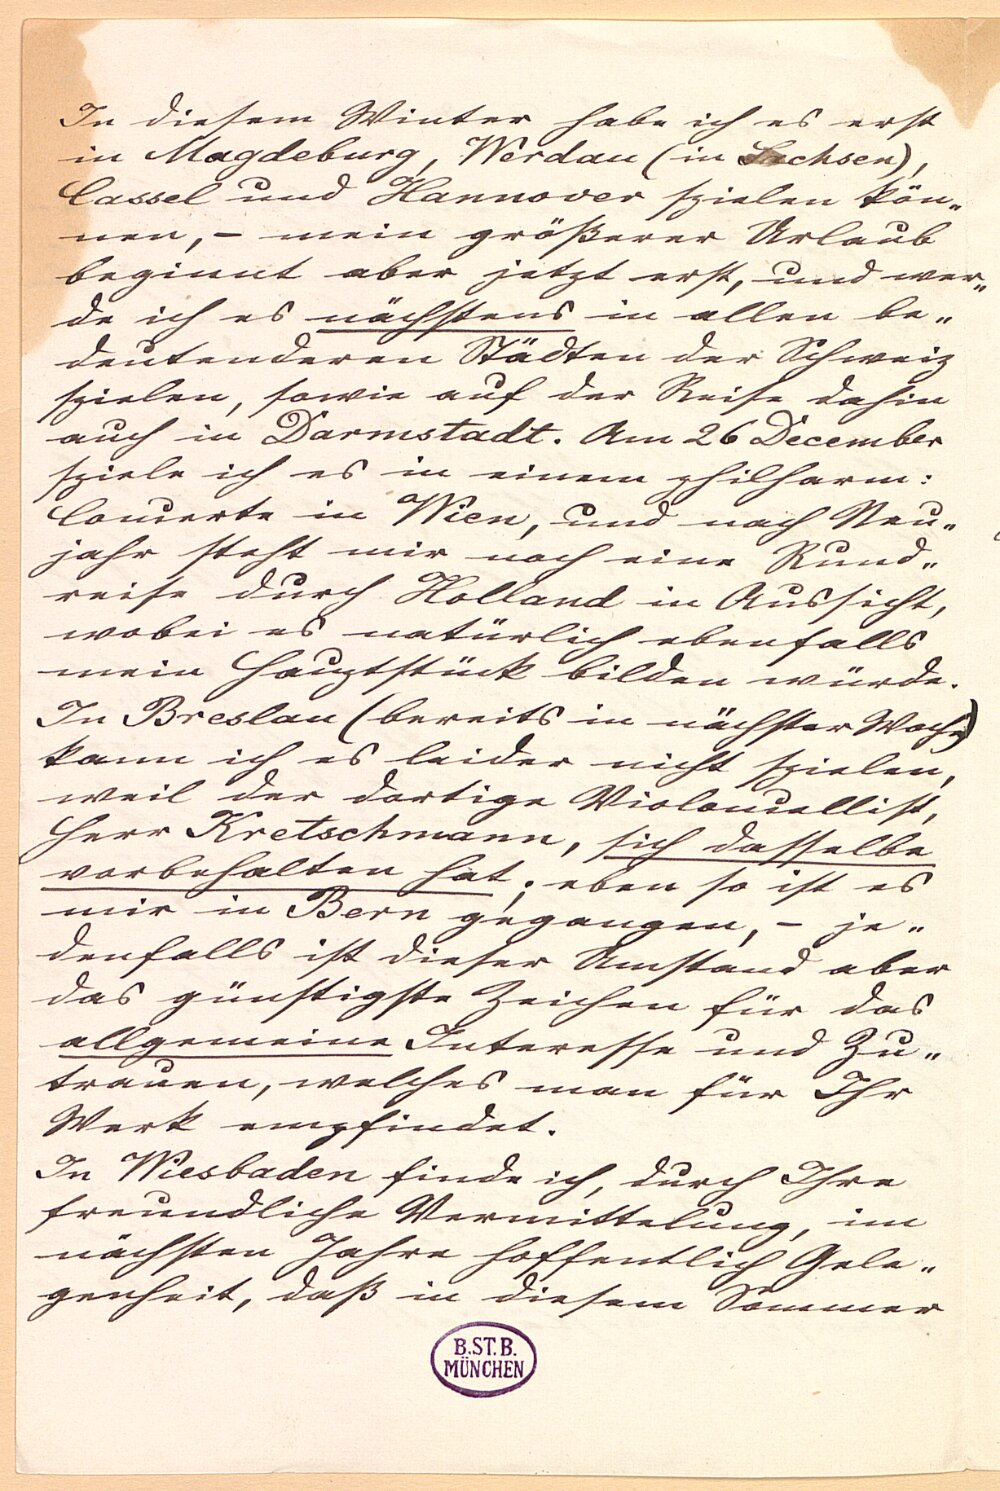 In diesem Winter habe ich es erst
in Magdeburg, Werdau (in Sachsen),
Cassel und Hannover spielen kön„
nen, – mein größerer Urlaub
beginnt aber jetzt erst, und wer„
de ich es nächstens in allen be„
deutenderen Städten der Schweiz
spielen, sowie auf der Reise dahin
auch in Darmstadt. Am 26 December
spiele ich es in einem philharm:
Concerte in Wien, und nach Neu„
jahr steht mir noch eine Rund„
reise durch Holland in Aussicht,
wobei es natürlich ebenfalls
mein Hauptstück bilden würde.
In Breslau (bereits in nächster Woche)
kann ich es leider nicht spielen,
weil der dortige Violoncellist,
Herr Kretschmann, sich dasselbe
vorbehalten hat; eben so ist es
mir in Bern gegangen, – je„
denfalls ist dieser Umstand aber
das günstigste Zeichen für das
allgemeine Interesse und Zu„
trauen, welches man für Ihr
Werk empfindet.
In Wiesbaden finde ich, durch Ihre
freundliche Vermittelung, im
nächsten Jahre hoffentlich Gele„
genheit, daß in diesem Sommer
B.ST.B.
MÜNCHEN